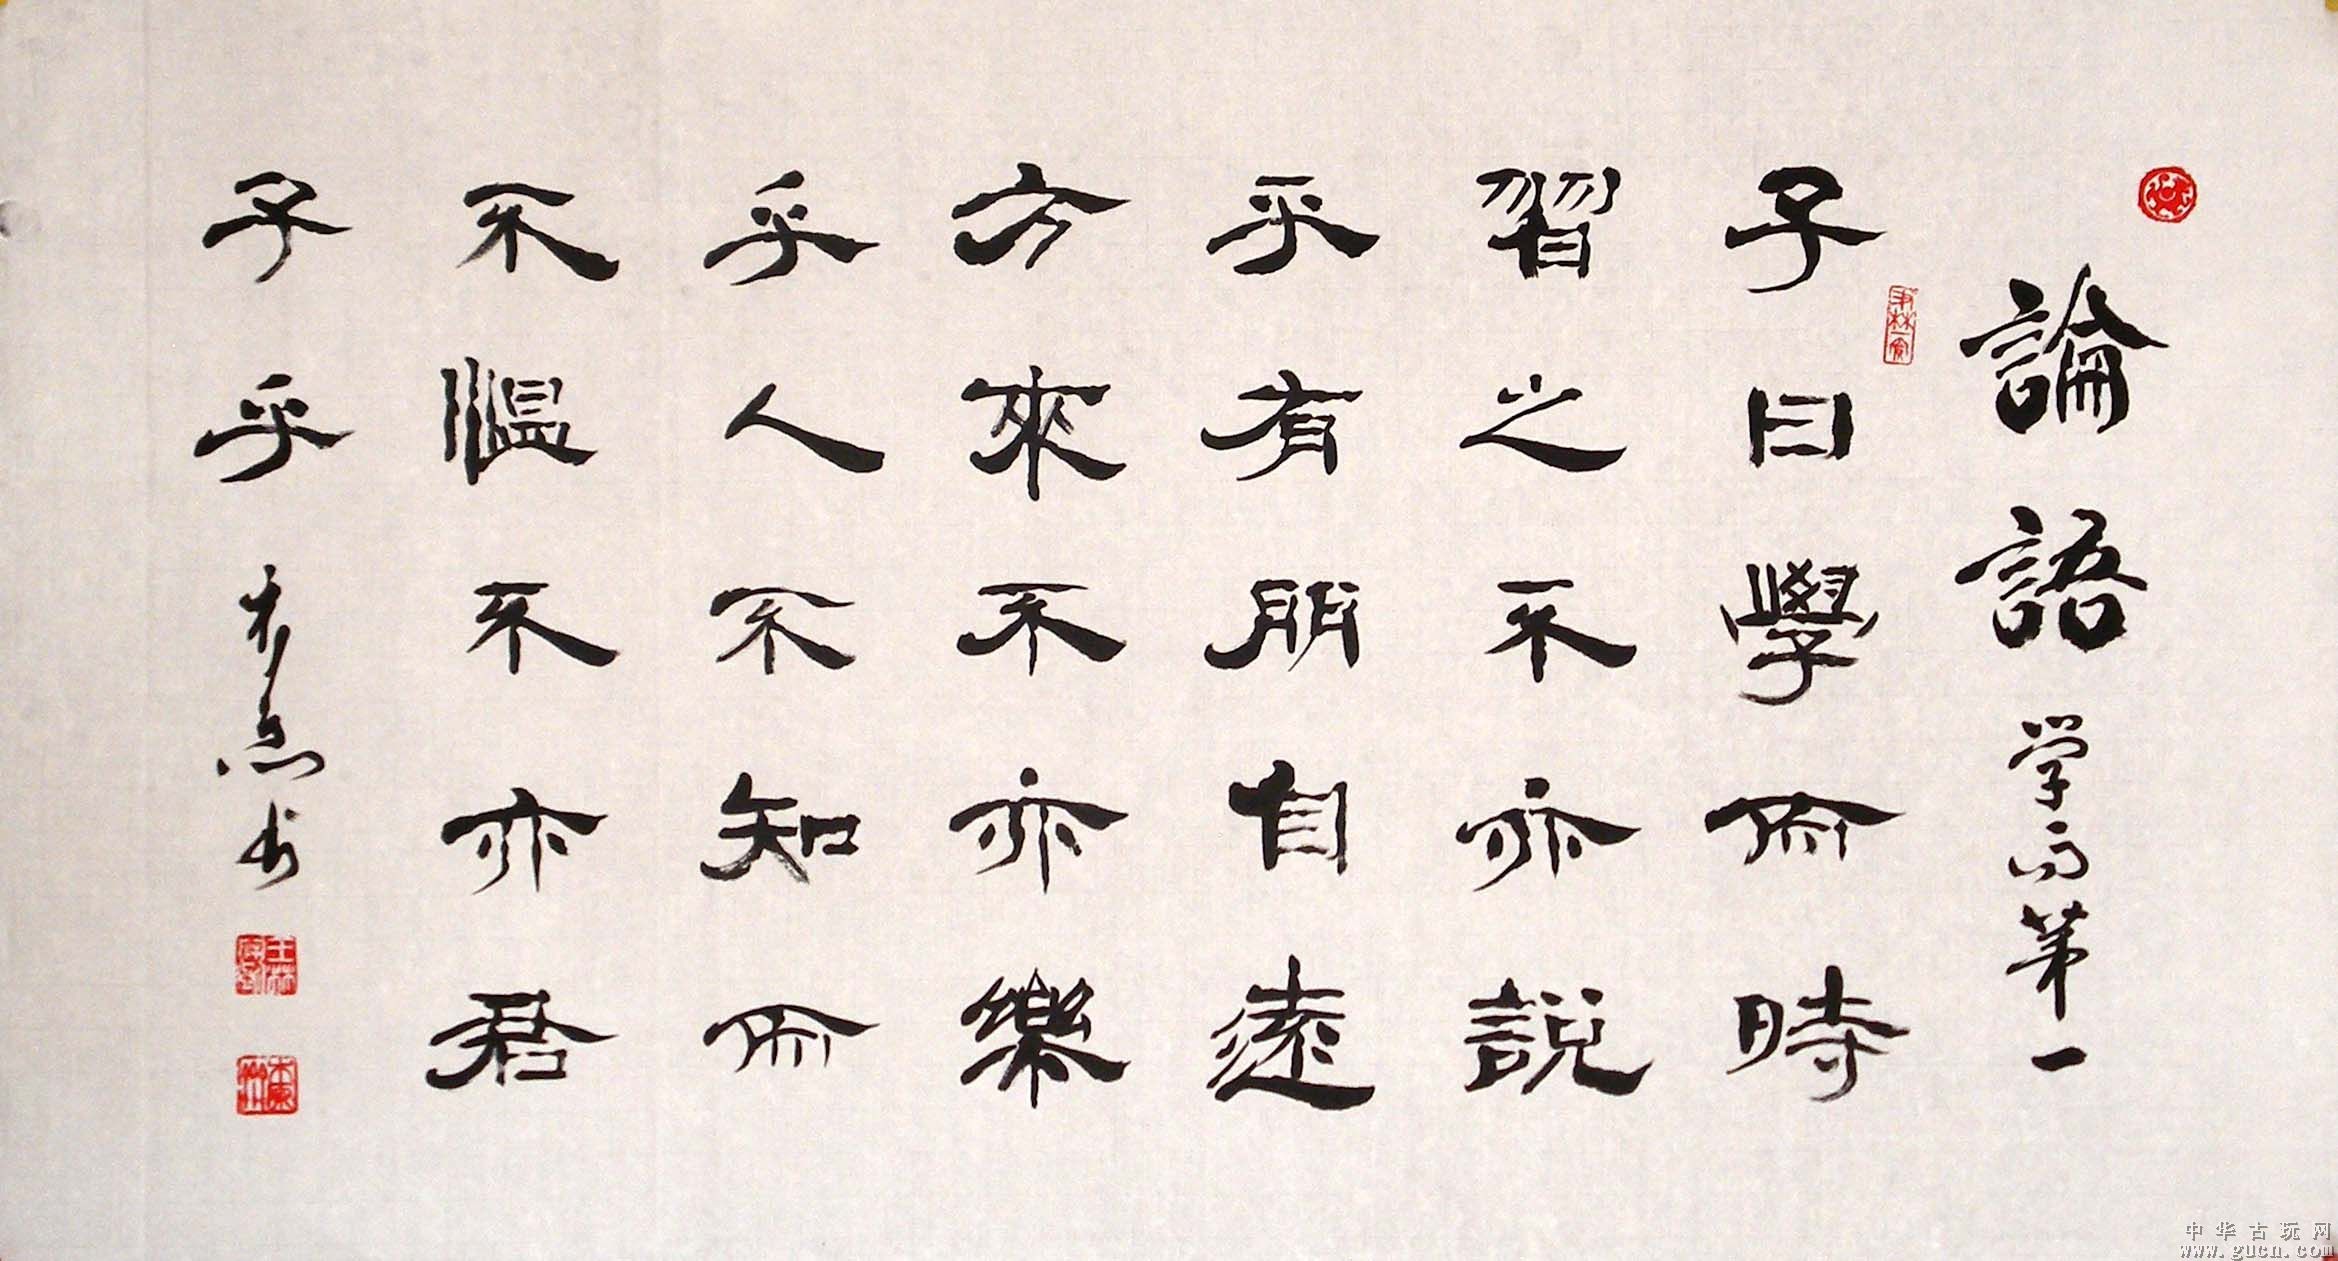 論語 学而第一
子曰學而時
習之不亦説
乎有朋自遠
方來不亦樂
乎人不知而
不慍不亦君
子乎
中华古玩网
www.gucn.com